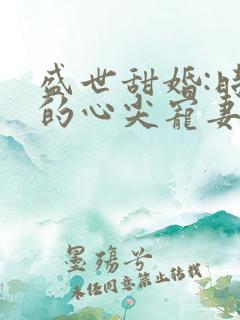 盛世甜婚:
的心尖寵妻
墨殤兮
未经同意禁止转载